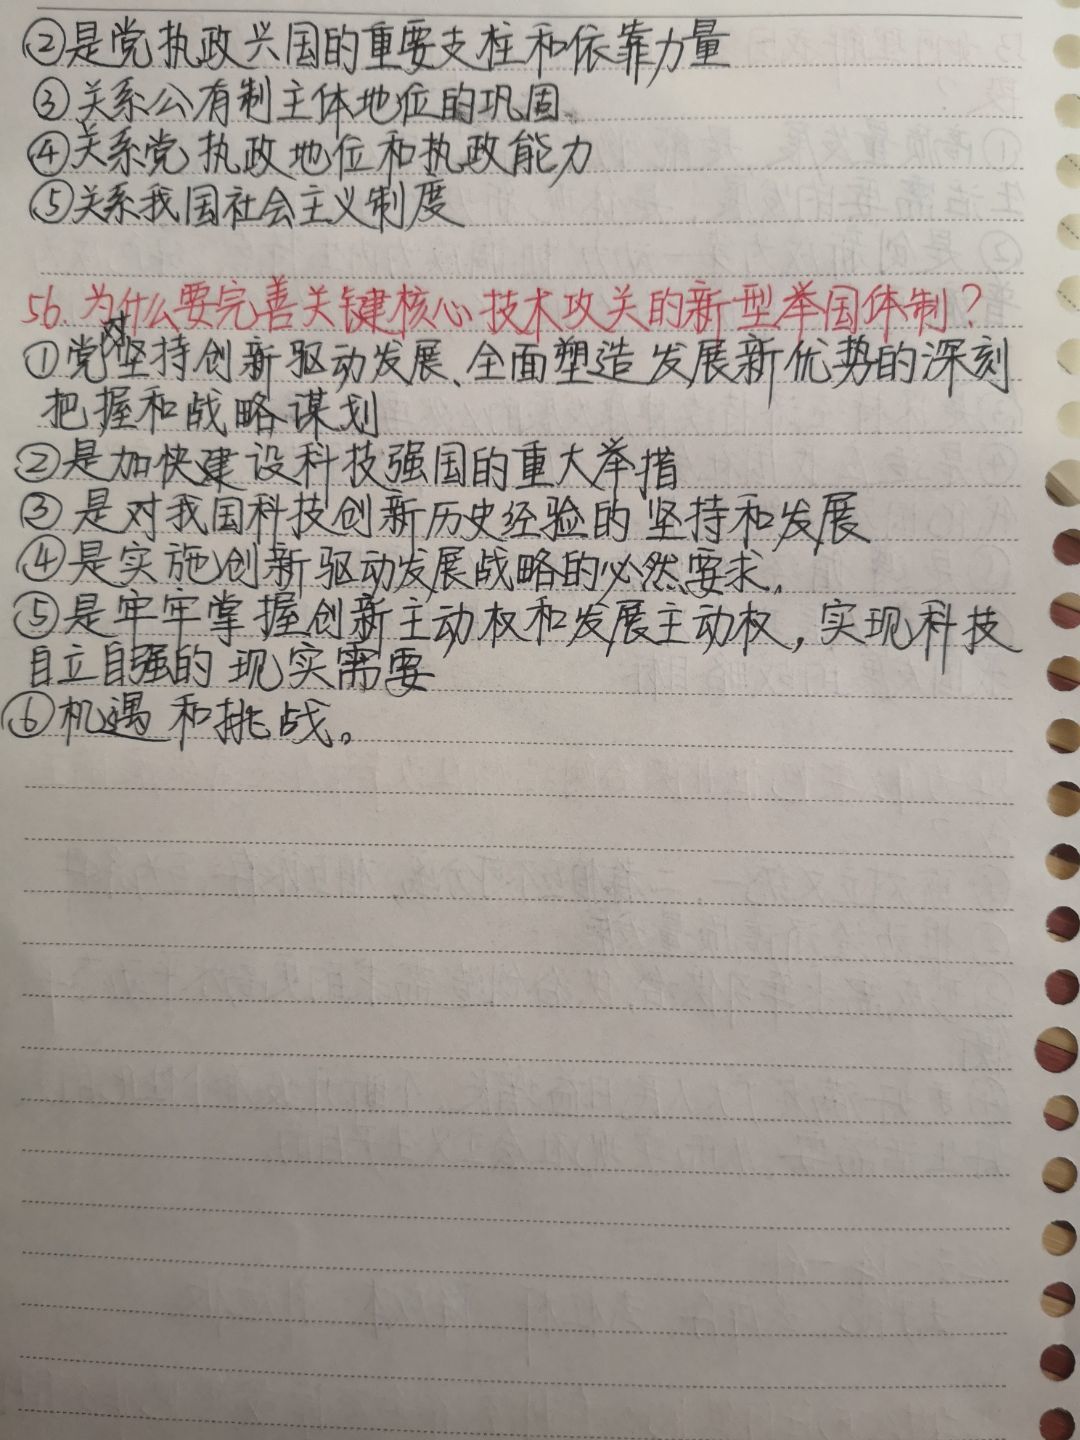 ②是党执政兴国的重要支柱和依靠力量
③关系公有制主体地位的巩固
④关系党执政地位和执政能力
⑤关系我国社会主义制度
56.为什么要完善关键核心技术攻关的新型举国体制？
①党对坚持创新驱动发展、全面塑造发展新优势的深刻
把握和战略谋划
②是加快建设科技强国的重大举措
③是对我国科技创新历史经验的坚持和发展
④是实施创新驱动发展战略的必然要求,
⑤是牢牢掌握创新主动权和发展主动权，实现科技
自立自强的现实需要
⑥机遇和挑战。